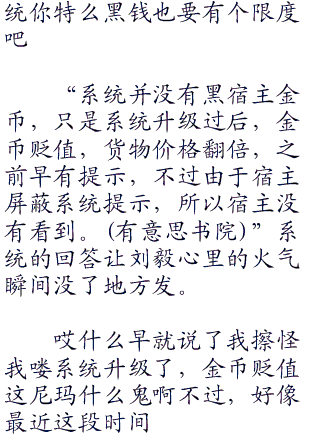 统你特么黑钱也要有个限度
吧
“系统并没有黑宿主金
币，只是系统升级过后，金
币贬值，货物价格翻倍，之
前早有提示，不过由于宿主
屏蔽系统提示，所以宿主没
有看到。(有意思书院)”系
统的回答让刘毅心里的火气
瞬间没了地方发。
哎什么早就说了我擦怪
我喽系统升级了，金币贬值
这尼玛什么鬼啊不过，好像
最近这段时间